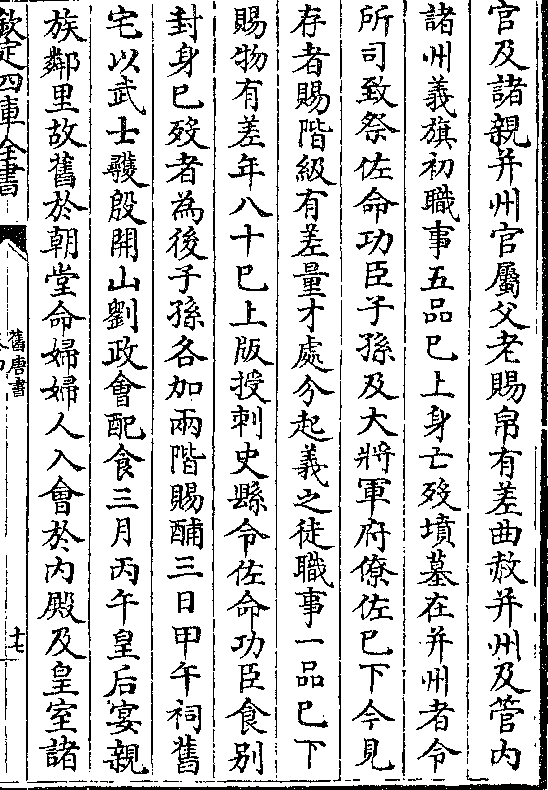 官及諸親并州官屬父老賜帛有差曲赦并州及管内
諸州義旗初職事五品已上身亡歿墳墓在并州者令
所司致祭佐命功臣子孫及大將軍府僚佐已下今見
存者賜階級有差量才處分起義之徒職事一品已下
賜物有差年八十已上版授刺史縣令佐命功臣食别
封身已歿者為後子孫各加兩階賜酺三日甲午祠舊
宅以武士彠殷開山劉政會配食三月丙午皇后宴親
族鄰里故舊於朝堂命婦婦人入會於内殿及皇室諸
欽定四庫全書
舊唐書
十七